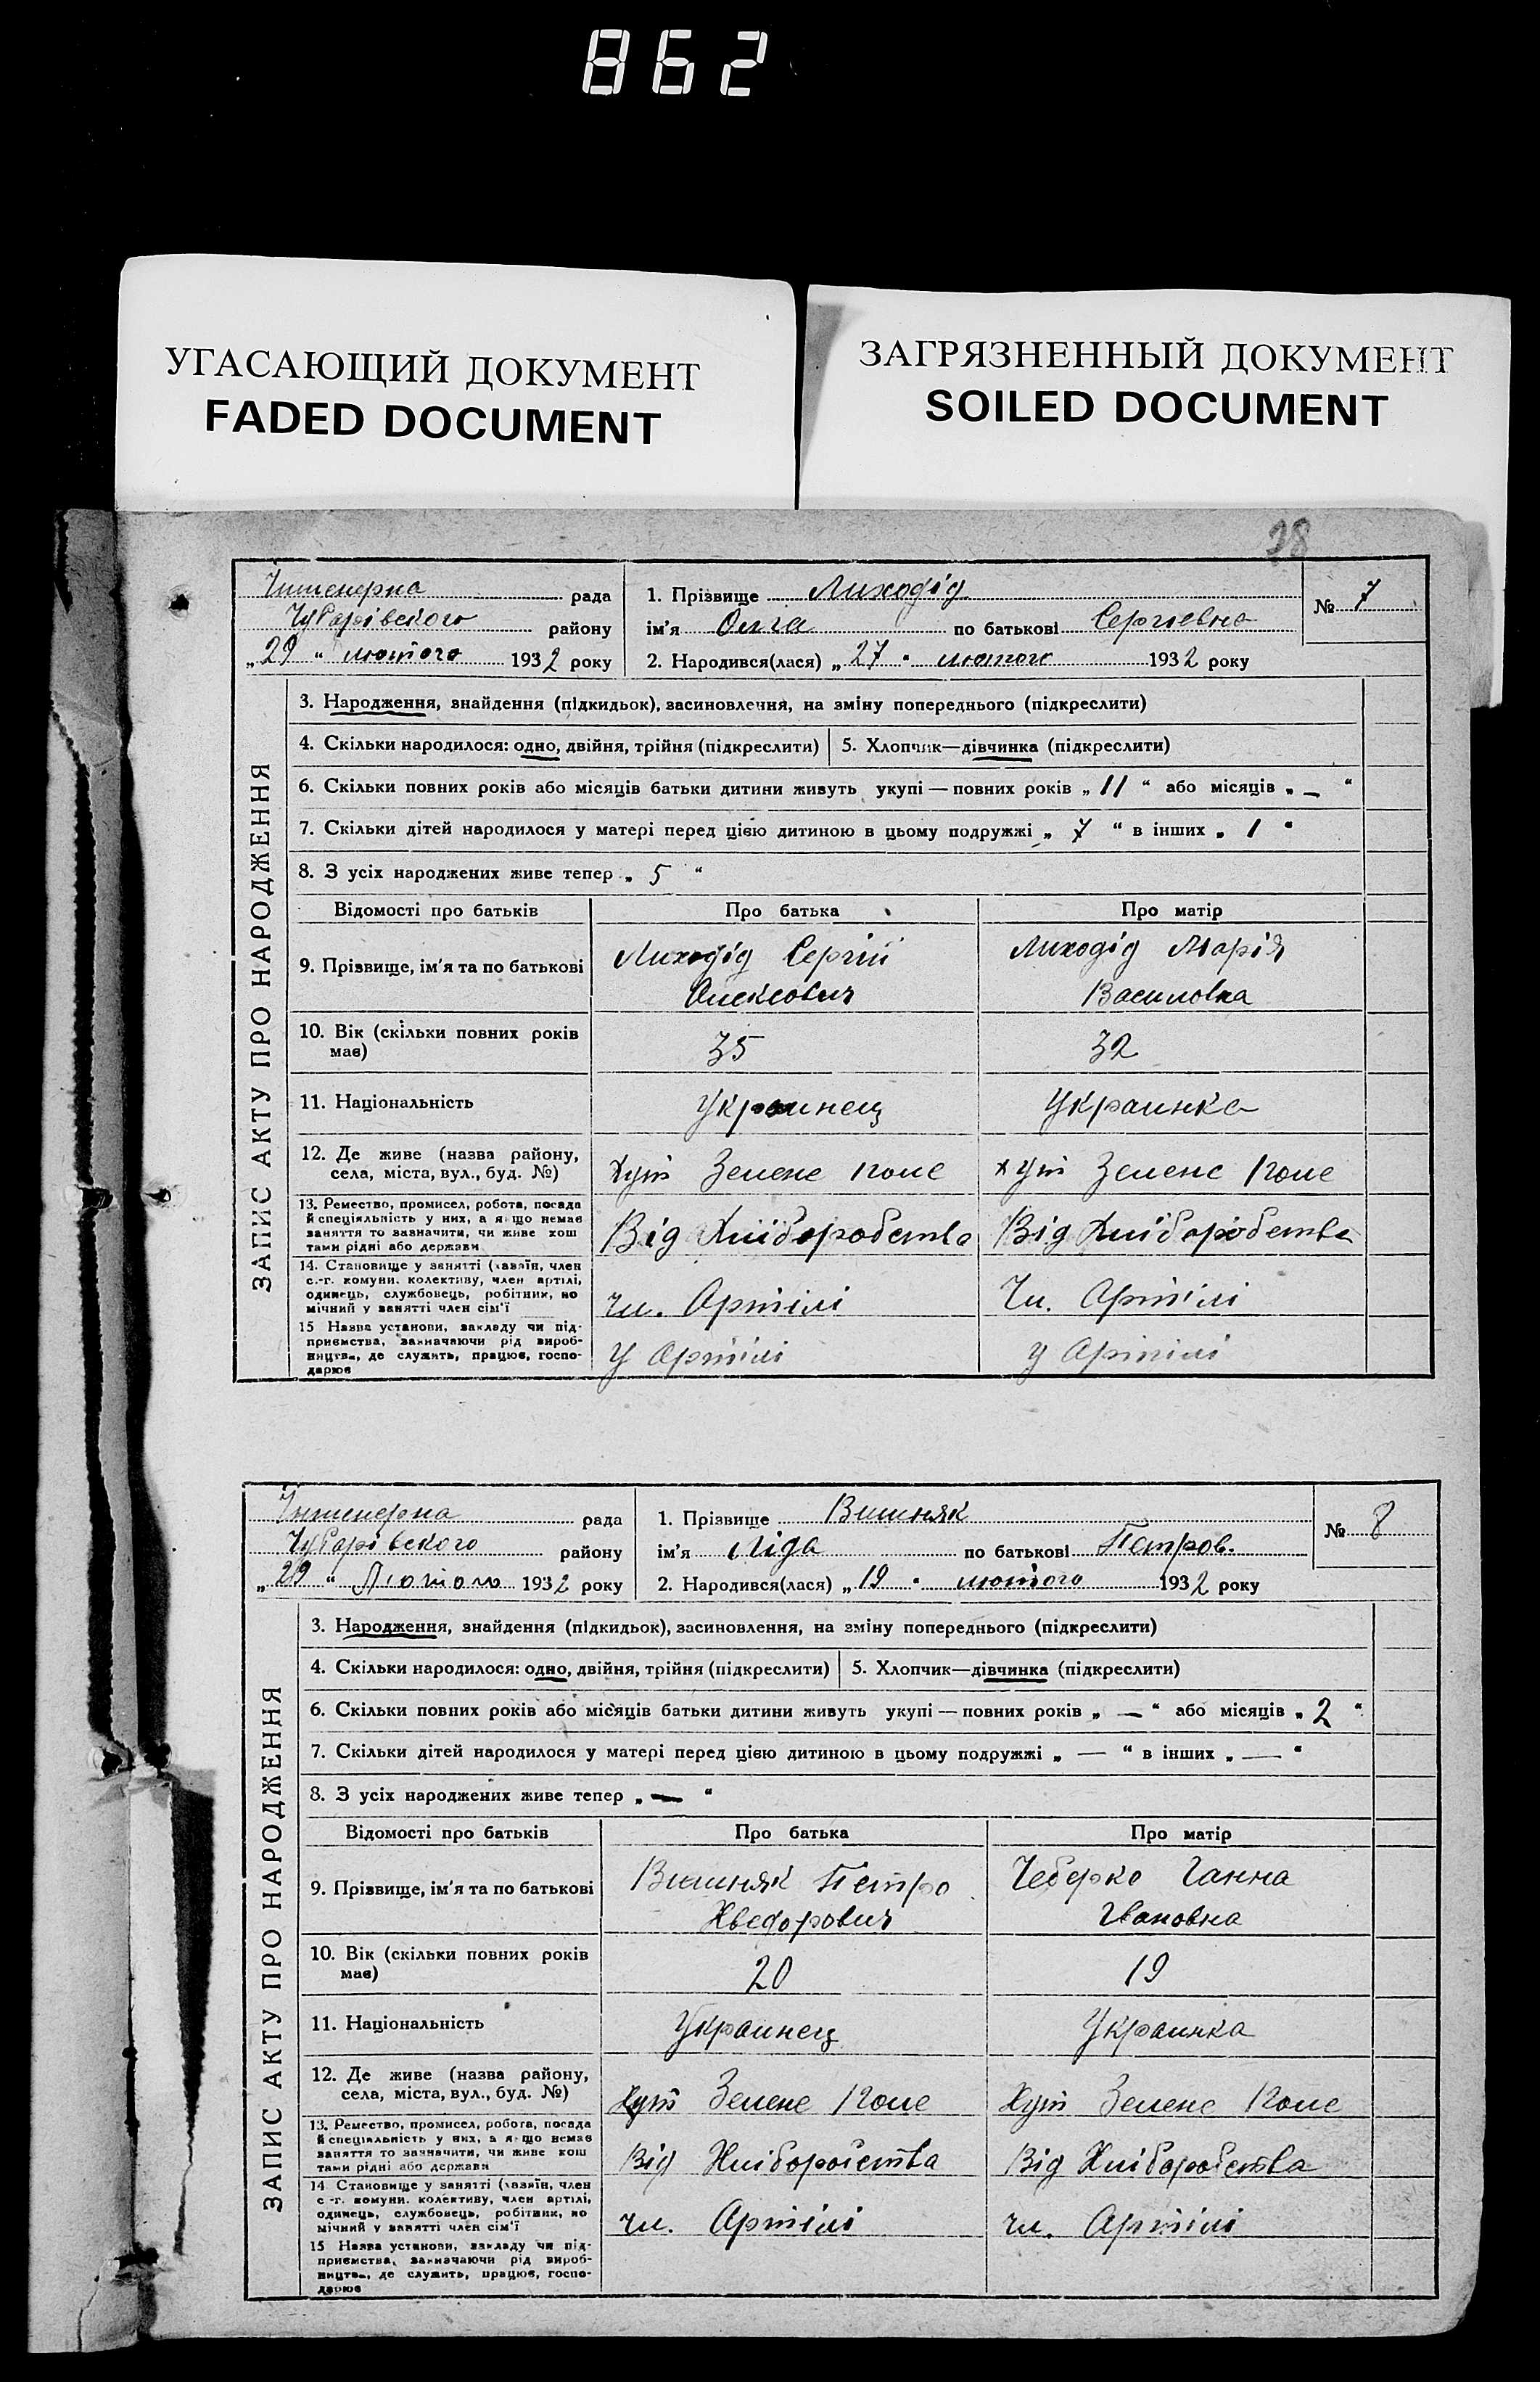 862
УГАСАЮЩИЙ ДОКУМЕНТ
FADED DOCUMENT
ЗАГРЯЗНЕННЫЙ ДОКУМЕНТ
SOILED DOCUMENT
38
Інтенерна рада
Чубарівского району
„29 “ лютого 1932 року
1. Прізвище Лиходід
ім'я Олга по батькові Сергіевна
2. Народився(лася) „27 “ лютого 1932 року
№ 7
ЗАПИС АКТУ ПРО НАРОДЖЕННЯ
3. Народження, знайдення (підкидьок), засиновлення, на зміну попереднього (підкреслити)
4. Скільки народилося: одно, двійня, трійня (підкреслити) 5. Хлопчик—дівчинка (підкреслити)
6. Скільки повних років або місяців батьки дитини живуть укупі — повних років „ 11 “ або місяців „ — “
7. Скільки дітей народилося у матері перед цією дитиною в цьому подружжі „ 7 “ в інших „ 1 “
8. З усіх народжених живе тепер „ 5 “
Відомості про батьків Про батька Про матір
9. Прізвище, ім'я та по батькові Лиходід Сергій Лиходід Марія
Олексеович Василовна
10. Вік (скільки повних років 35 32
має)
11. Національність Украинец Украинка
12. Де живе (назва району, Хут Зелене Поле хут Зелене Поле
села, міста, вул., буд. №)
13. Ремество, промисел, робота, посада
й спеціяльність у них, а якщо немає Від Хліборобства Від Хліборобства
заняття то зазначити, чи живе кош
тами рідні або держави
14. Становище у занятті (хазяїн, член
с.-г. комуни, колективу, член артілі,
одинець, службовець, робітник, по Чл. Артілі Чл. Артілі
мічний у занятті член сім'ї
15 Назва установи, закладу чи під-
приємства, зазначаючи рід вироб- У Артілі У Артілі
ництва, де служить, працює, госпо-
дарює
Інтенерна рада
Чубарівского району
„29 “ Лютого 1932 року
1. Прізвище Вишняк
ім'я Ліда по батькові Петров.
2. Народився(лася) „19 “ лютого 1932 року
№ 8
ЗАПИС АКТУ ПРО НАРОДЖЕННЯ
3. Народження, знайдення (підкидьок), засиновлення, на зміну попереднього (підкреслити)
4. Скільки народилося: одно, двійня, трійня (підкреслити) 5. Хлопчик—дівчинка (підкреслити)
6. Скільки повних років або місяців батьки дитини живуть укупі — повних років „ — “ або місяців „ 2 “
7. Скільки дітей народилося у матері перед цією дитиною в цьому подружжі „ — “ в інших „ — “
8. З усіх народжених живе тепер „ — “
Відомості про батьків Про батька Про матір
9. Прізвище, ім'я та по батькові Вишняк Петро Чеберко Ганна
Хведорович Івановна
10. Вік (скільки повних років 20 19
має)
11. Національність Украинец Украинка
12. Де живе (назва району, Хут Зелене Поле Хут Зелене Поле
села, міста, вул., буд. №)
13. Ремество, промисел, робота, посада
й спеціяльність у них, а якщо немає Від Хліборобства Від Хліборобства
заняття то зазначити, чи живе кош
тами рідні або держави
14 Становище у занятті (хазяїн, член
с-г. комуни, колективу, член артілі,
одинець, службовець, робітник, по чл. Артілі чл. Артілі
мічний у занятті член сім'ї
15 Назва установи, закладу чи під-
приємства, зазначаючи рід вироб-
ництва, де служить, працює, госпо-
дарює